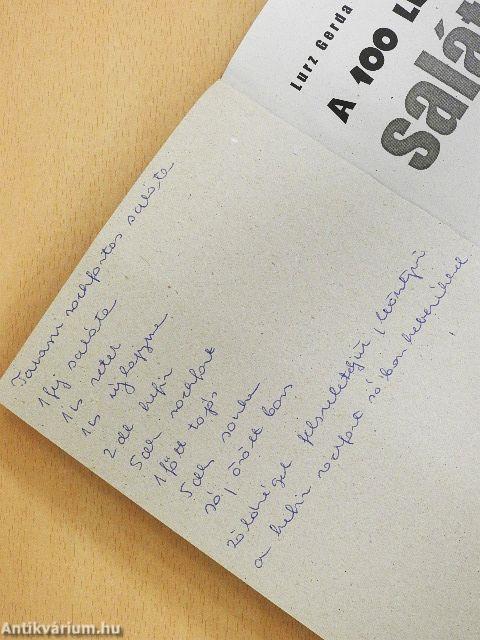 Lurz Gerda
A 100 LE
salát
Tavaszi rockfortos saláta
1 fej saláta
1 cs retek
1 cs újhagyma
2 dl kefir
5 dkg rockfort
1 főtt tojás
5 dkg sonka
só, őrölt bors
zöldséget felszeleteljük, leöntjük
a kefir rockfort só bors keverékkel
Antikvárium.hu